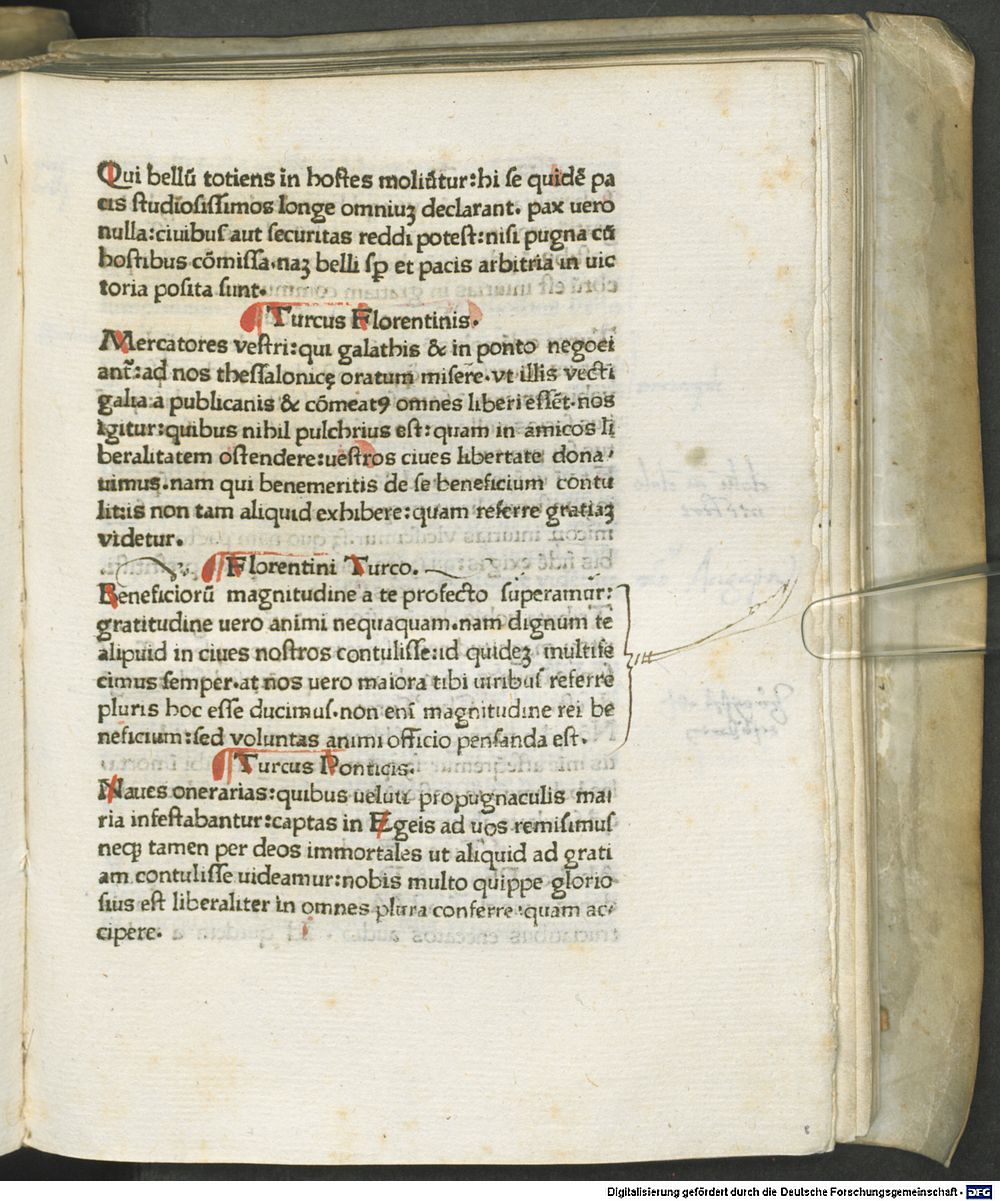 Qui bellū totiens in hostes moliūtur:hi se quidē pa
cis studiosissimos longe omniuꝫ declarant. pax uero
nulla:ciuibus aut securitas reddi potest:nisi pugna cū
hostibus cōmissa.naꝫ belli sꝑ et pacis arbitria in uic
toria posita sunt.
Turcus Florentinis.
Mercatores vestri:qui galathis & in ponto negoci
ant̄:ad nos thessalonicę oratum misere.vt illis vecti
galia a publicanis & cōmeatꝰ omnes liberi essēt.nos
igitur:quibus nihil pulchrius est:quam in amicos li
beralitatem ostendere:uestros ciues libertate dona
uimus.nam qui benemeritis de se beneficium contu
litus non tam aliquid exhibere:quam referre gratiaꝫ
videtur.
Florentini Turco.
Beneficiorū magnitudine a te profecto superamur:
gratitudine uero animi nequaquam.nam dignum te
alipuid in ciues nostros contulisse:id quideꝫ multife
cimus semper.at nos uero maiora tibi uiribus referre
pluris hoc esse ducimus.non enī magnitudine rei be
neficium:sed voluntas animi officio pensanda est.
Turcus Ponticis.
Naues onerarias:quibus ueluti propugnaculis mai
ria infestabantur:captas in Egeis ad uos remisimus
necꝫ tamen per deos immortales ut aliquid ad grati
am contulisse uideamur:nobis multo quippe glorio
sius est liberaliter in omnes plura conferre:quam ac
cipere.
Digitalisierung gefördert durch die Deutsche Forschungsgemeinschaft - DFG